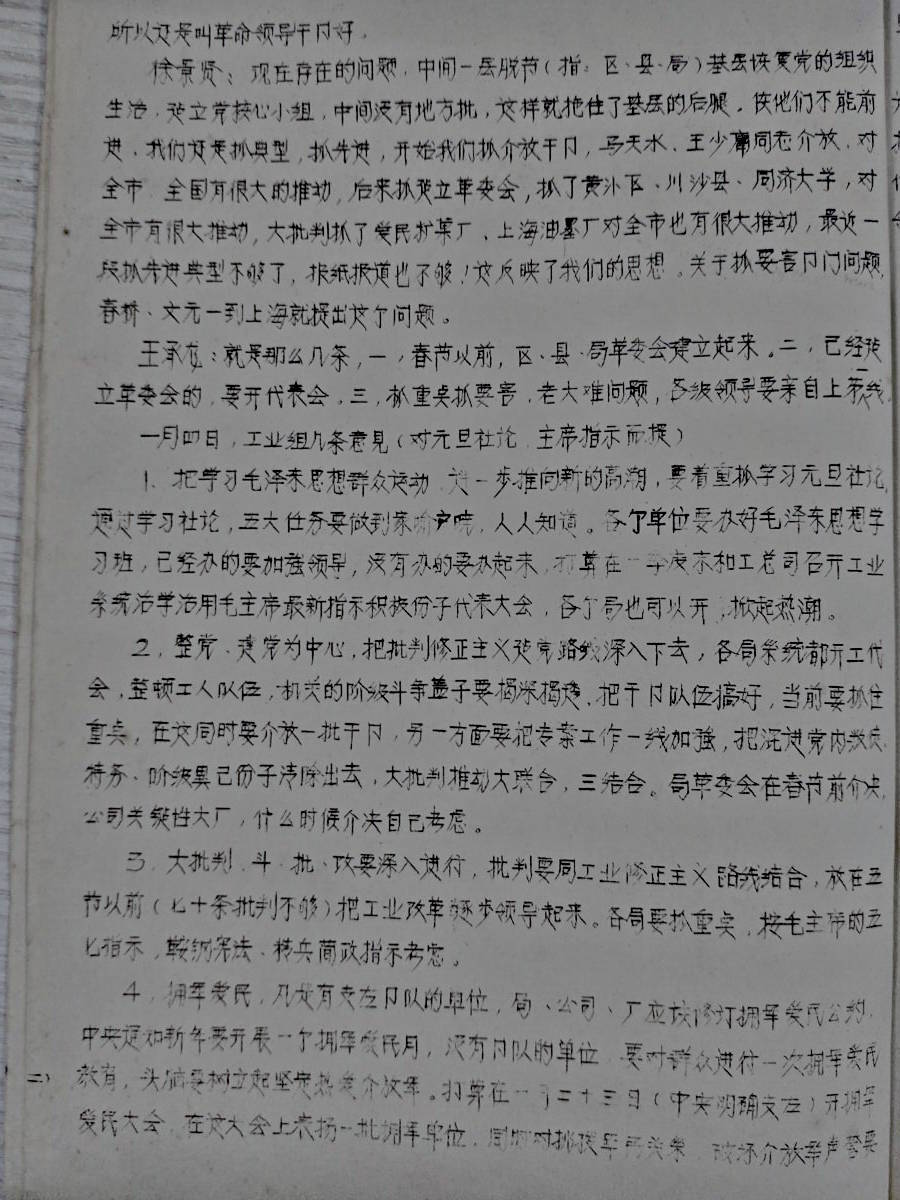 所以还是叫革命领导干卩好。
徐景贤：现在存在的问题，中间一层脱节（指：区、县、局）基层恢复党的组织
生活，建立党核心小组，中间没有地方批，这样就拖住了基层的后腿。使他们不能前
进，我们还是抓典型，抓先进，开始我们抓介放干卩，马天水、王少庸同志介放，对
全市、全国有很大的推动，后来抓建立革委会，抓了黄浦区、川沙县、同济大学，对
全市有很大推动，大批判抓了爱民扩某厂、上海油墨厂对全市也有很大推动，最近一
段抓先进典型不够了，报纸报道也不够！这反映了我们的思想。关于抓要害卩门问题，
春桥、文元一到上海就提出这个问题。
王承龙：就是那么几条，一，春节以前，区、县、局革委会建立起来。二，已经建
立革委会的，要开代表会，三，抓重点抓要害，老大难问题，各级领导要亲自上茅线。
一月四日，工业组几条意见（对元旦社论、主席指示而提）
1、把学习毛泽东思想群众运动，进一步推向新的高潮，要着重抓学习元旦社论，
通过学习社论，五大任务要做到家喻户晓，人人知道。各个单位要办好毛泽东思想学
习班，已经办的要加强领导，没有办的要办起来，打算在一季度末和工总司召开工业
系统活学活用毛主席最新指示积极份子代表大会，各个局也可以开，掀起热潮。
2，整党、建党为中心，把批判修正主义建党路线深入下去，各局系统都开工代
会，整顿工人队伍，机关的阶级斗争盖子要揭深揭透，把干卩队伍搞好，当前要抓住
重点，在这同时要介放一批干卩，另一方面要把专案工作一线加强，把混进党内叛徒
特务、阶级异己份子清除出去，大批判推动大联合，三结合。局革委会在春节前介决，
公司关键性大厂，什么时候介决自己考虑。
3，大批判、斗、批、改要深入进行，批判要同工业修正主义路线结合，放在五
节以前（七十条批判不够）把工业改革逐步领导起来。各局要抓重点，按毛主席的五
七指示，鞍钢宪法、精兵简政指示考虑。
4，拥军爱民，凡是有支左卩队的单位，局、公司、厂应该修订拥军爱民公约，
中央通知新年要开展一个拥军爱民月，没有卩队的单位，要对群众进行一次拥军爱民
教育，头脑要树立起坚定热爱介放军。打算在一月二十三日（中央明确支左）开拥军
爱民大会，在这大会上表扬一批拥军单位，同时对挑拨军民关系，破坏介放军声誉要